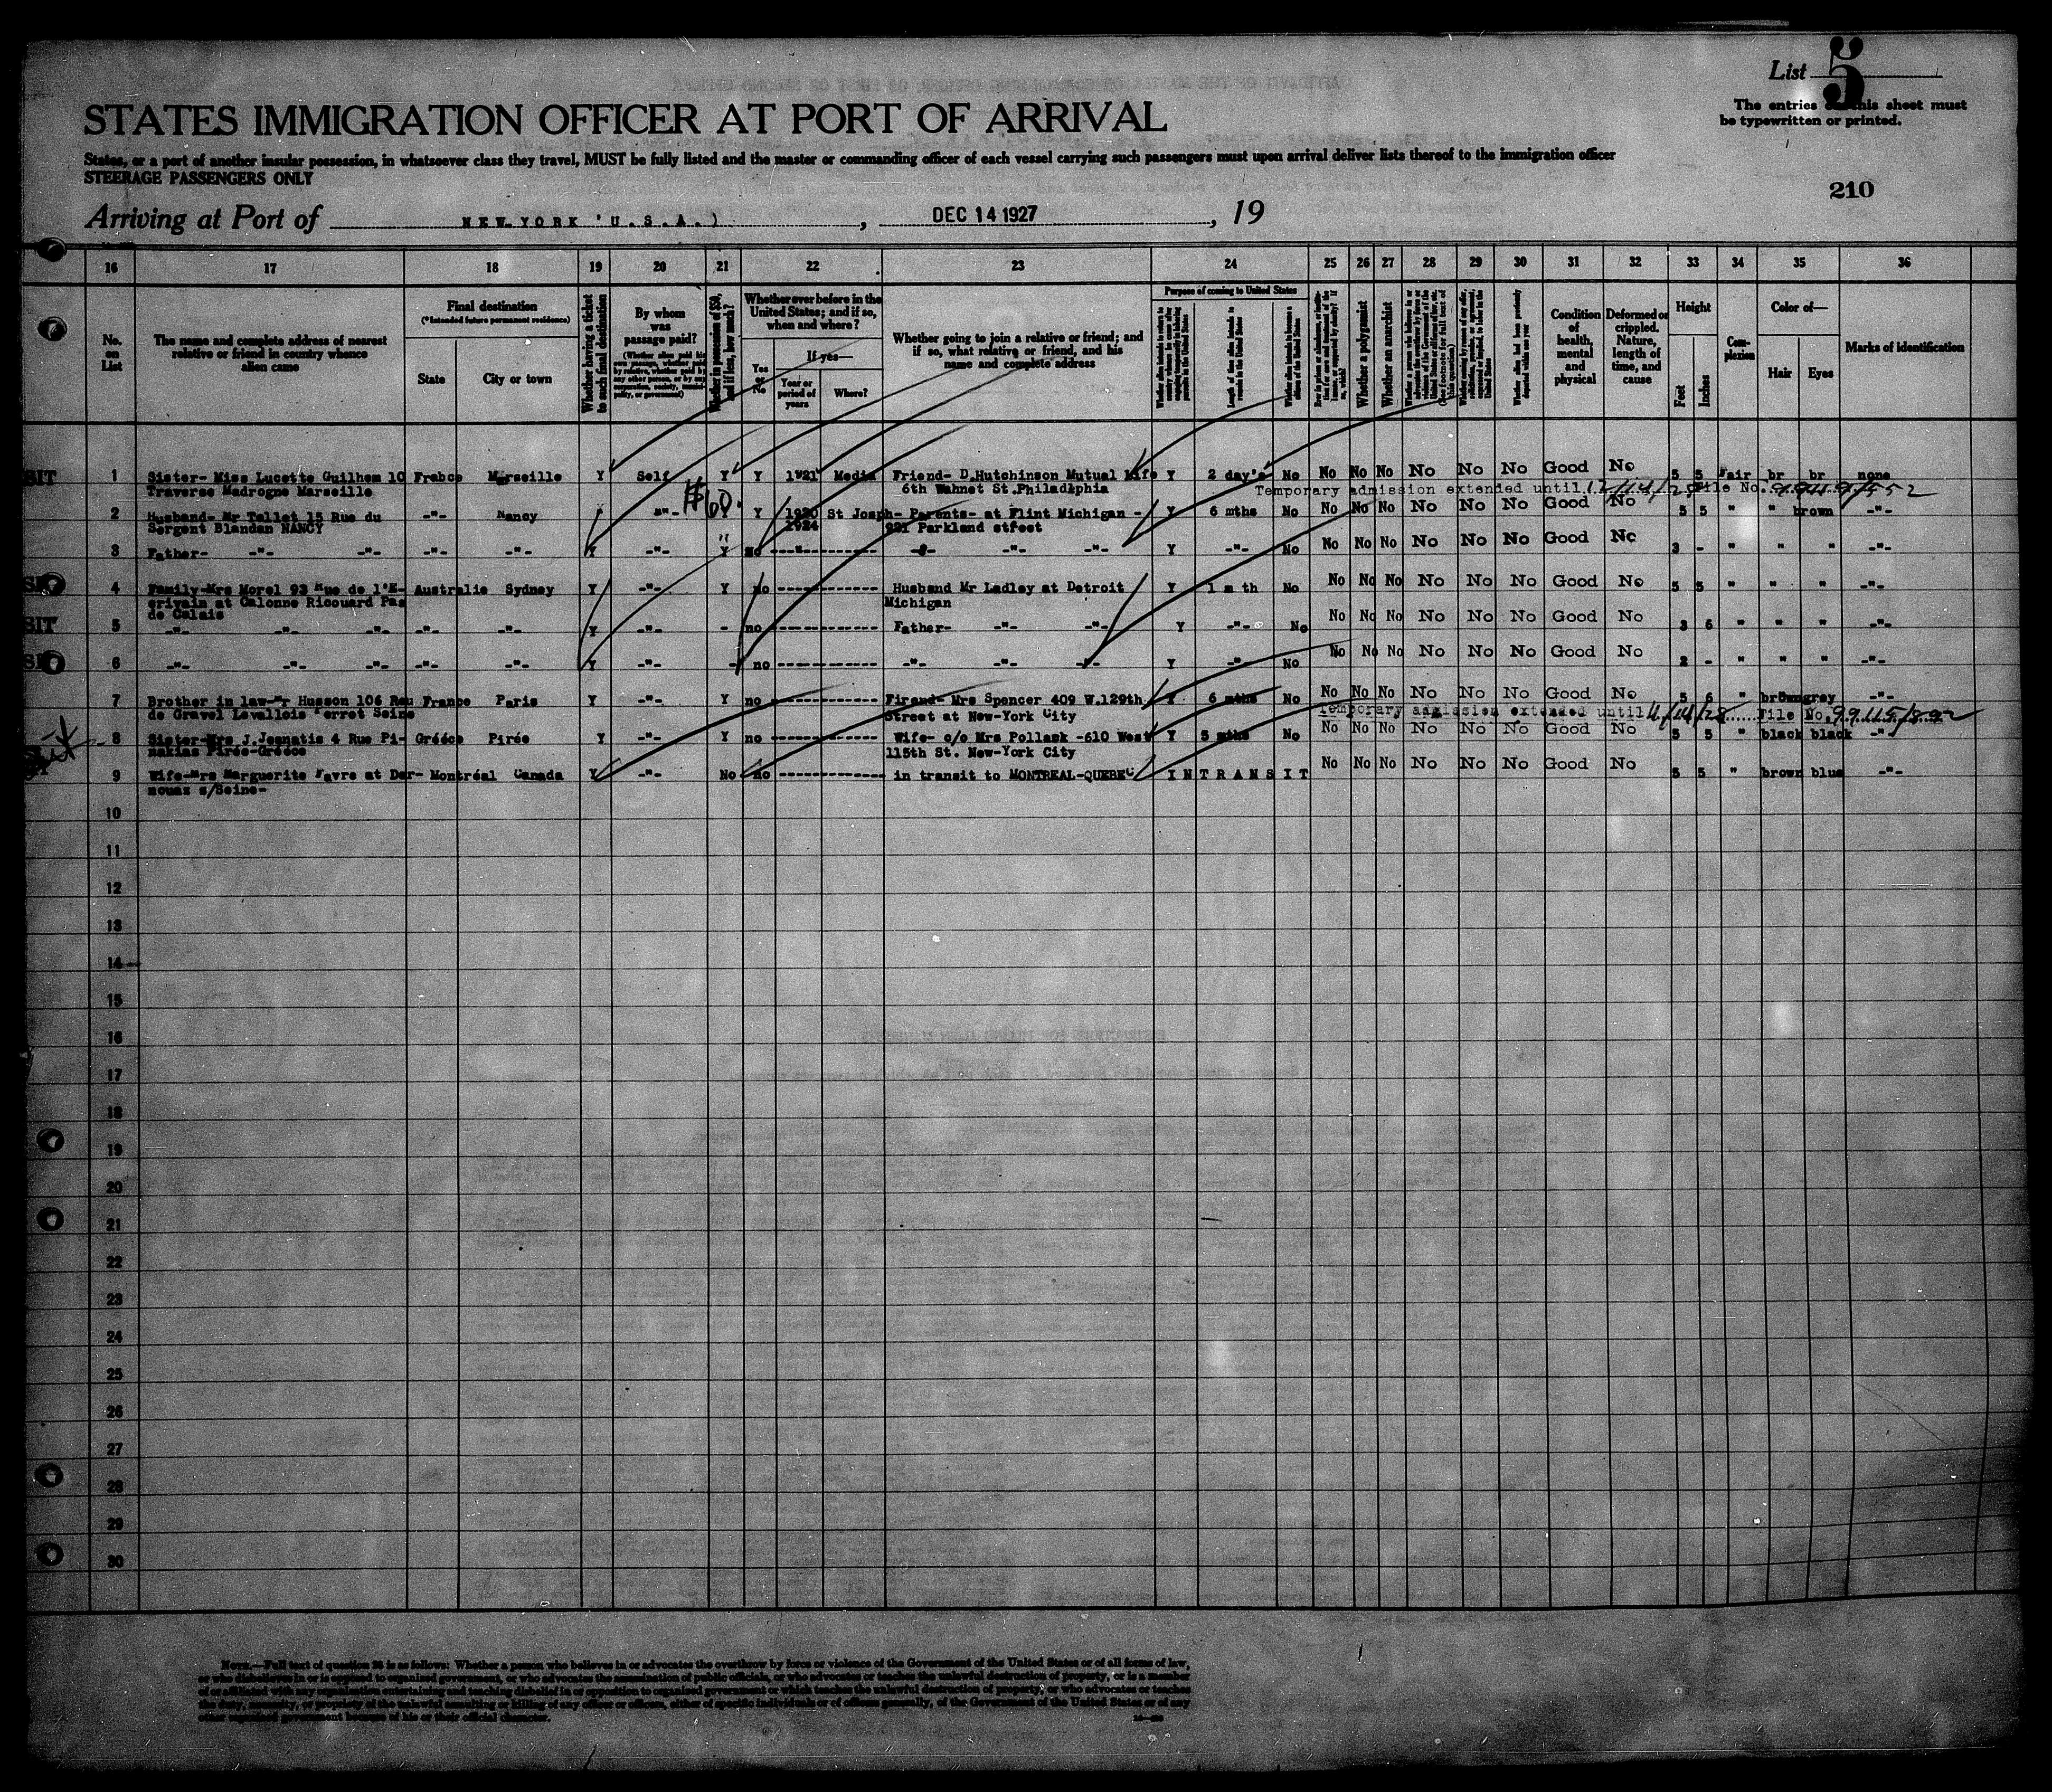 List 5
STATES IMMIGRATION OFFICER AT PORT OF ARRIVAL
The entries on this sheet must
be typewritten or printed.
States, or a port of another insular possession, in whatsoever class they travel, MUST be fully listed and the master or commanding officer of each vessel carrying such passengers must upon arrival deliver lists thereof to the immigration officer
STEERAGE PASSENGERS ONLY
210
Arriving at Port of NEW-YORK 'U.S.A.) , DEC 14 1927 , 19
16 17 18 19 20 21 22 23 24 25 26 27 28 29 30 31 32 33 34 35 36
No. on List
The name and complete address of nearest relative or friend in country whence alien came
Final destination
(*Intended future permanent residence)
State
City or town
Whether having a ticket to such final destination
By whom was passage paid?
Whether in possession of $50, and if less, how much?
Whether ever before in the United States; and if so, when and where?
Yes or No
If yes—
Year or period of years
Where?
Whether going to join a relative or friend; and if so, what relative or friend, and his name and complete address
Purpose of coming to United States
Length of time alien intends to remain in the United States
Whether a polygamist
Whether an anarchist
Condition of health, mental and physical
Deformed or crippled. Nature, length of time, and cause
Height
Feet
Inches
Complexion
Color of—
Hair
Eyes
Marks of identification
SIT 1 Sister- Miss Lucette Guilhem 10 Frabce Marseille Y Self Y Y 1921 Media Friend- D.Hutchinson Mutual Life Y 2 day's No No No No No No No Good No 5 5 Fair br br none
Traverse Madrogne Marseille $60 6th Wahnet St.Philadlphia Temporary admission extended until 12/14/28 File No. 99119/552
2 Husband- Mr Tallet 15 Rue du -"- Nancy -"- Y 1920 St Josph- Parents- at Flint Michigan - Y 6 mths No No No No No No No Good No 5 5 " " brown -"-
Sergent Blandan NANCY 1924 921 Parkland stfeet
3 Father- -"- -"- -"- -"- Y -"- Y no ------------ -"- -"- -"- Y -"- No No No No No No No Good No 3 - " " " -"-
4 Family-Mrs Morel 93 Rue de l'E- Australie Sydney Y -"- Y no ------------ Husband Mr Ladley at Detroit Y 1 m th No No No No No No No Good No 5 5 " " " -"-
crivain at Calonne Ricouard Pas Michigan
de Calais
SIT 5 -"- -"- -"- -"- -"- Y -"- - no ------------ Father- -"- -"- Y -"- No No No No No No No Good No 3 6 " " " -"-
6 -"- -"- -"- -"- -"- Y -"- - no ------------ -"- -"- -"- Y -"- No No No No No No No Good No 2 - " " " -"-
7 Brother in law-Mr Husson 106 Rau France Paris Y -"- Y no ------------ Firend- Mrs Spencer 409 W.129th Y 6 mths No No No No No No No Good No 5 6 " brown grey -"-
de Gravel Levallois Perret Seine Street at New-York City Temporary admission extended until 4/14/28 File No. 99115/892
8 Sister-Mrs J.Jegnatis 4 Rue Pi- Gréece Pirée Y -"- Y no ------------ Wife- c/o Mrs Pollask -610 West Y 5 mths No No No No No No No Good No 5 5 " black black -"-
nakias Pirée-Gréece 115th St. New-York City
9 Wife-Mrs Marguerite Favre at Dar- Montréal Canada Y -"- No no ------------ in transit to MONTREAL-QUEBEC IN TRANSIT No No No No No No Good No 5 5 " brown blue -"-
nouax s/Seine-
10
11
12
13
14
15
16
17
18
19
20
21
22
23
24
25
26
27
28
29
30
NOTE.—Full text of question 28 is as follows: Whether a person who believes in or advocates the overthrow by force or violence of the Government of the United States or of all forms of law,
or who disbelieves in or is opposed to organized government, or who advocates the assassination of public officials, or who advocates or teaches the unlawful destruction of property, or is a member
of or affiliated with any organization entertaining and teaching disbelief in or opposition to organized government or which teaches the unlawful destruction of property, or who advocates or teaches
the duty, necessity, or propriety of the unlawful assaulting or killing of any officer or officers, either of specific individuals or of officers generally, of the Government of the United States or of any
other organized government because of his or their official character.